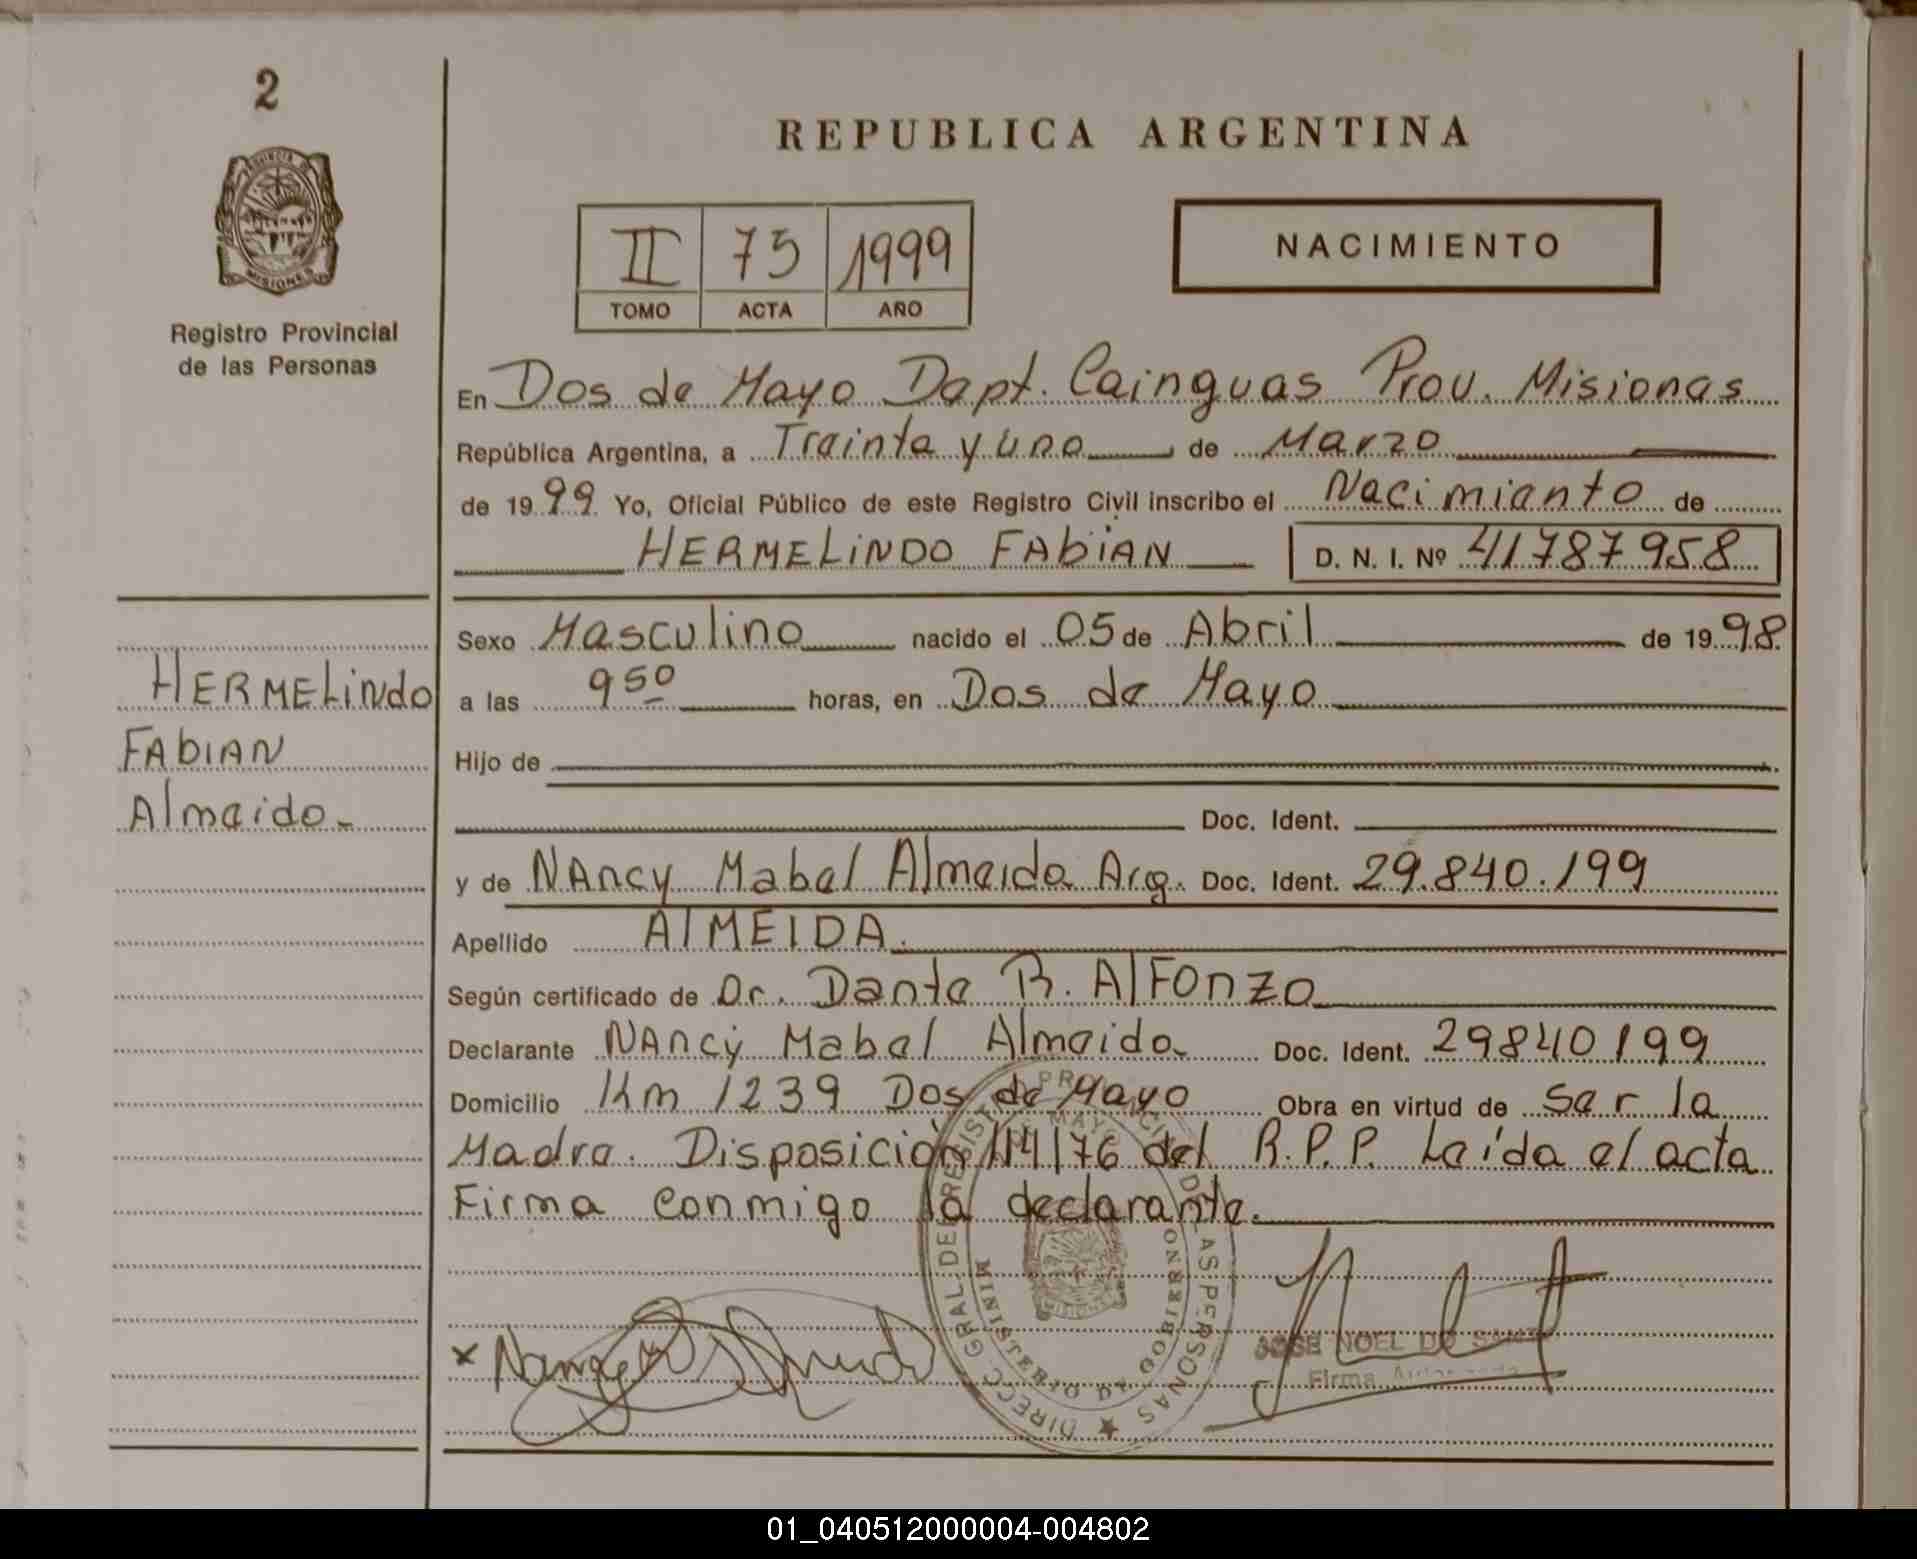 2
PROVINCIA DE
MISIONES
Registro Provincial
de las Personas
REPUBLICA ARGENTINA
II 75 1999
TOMO ACTA AÑO
NACIMIENTO
En Dos de Mayo Dept. Cainguas Prov. Misiones
República Argentina, a Treinta y uno de Marzo
de 1999 Yo, Oficial Público de este Registro Civil inscribo el Nacimiento de
HERMELINDO FABIAN D. N. I. Nº 41787958
Sexo Masculino nacido el 05 de Abril de 1998
a las 9 50 horas, en Dos de Mayo
Hijo de
Doc. Ident.
y de Nancy Mabel Almeida Arg. Doc. Ident. 29.840.199
Apellido AlMEIDA.
Según certificado de Dr. Dante R. AlFonzo
Declarante Nancy Mabel Almeida Doc. Ident. 29840199
Domicilio Km 1239 Dos de Mayo Obra en virtud de ser la
Madre. Disposición 114/76 del R.P.P. Leída el acta
Firma conmigo la declarante.
HERMELindo
FAbIAN
Almeida-
DIRECC GRAL DE REGISTRO PROVINCIAL DE LAS PERSONAS
MINISTERIO DE GOBIERNO
MISIONES
x
JOSE NOEL DO
Firma
01_040512000004-004802